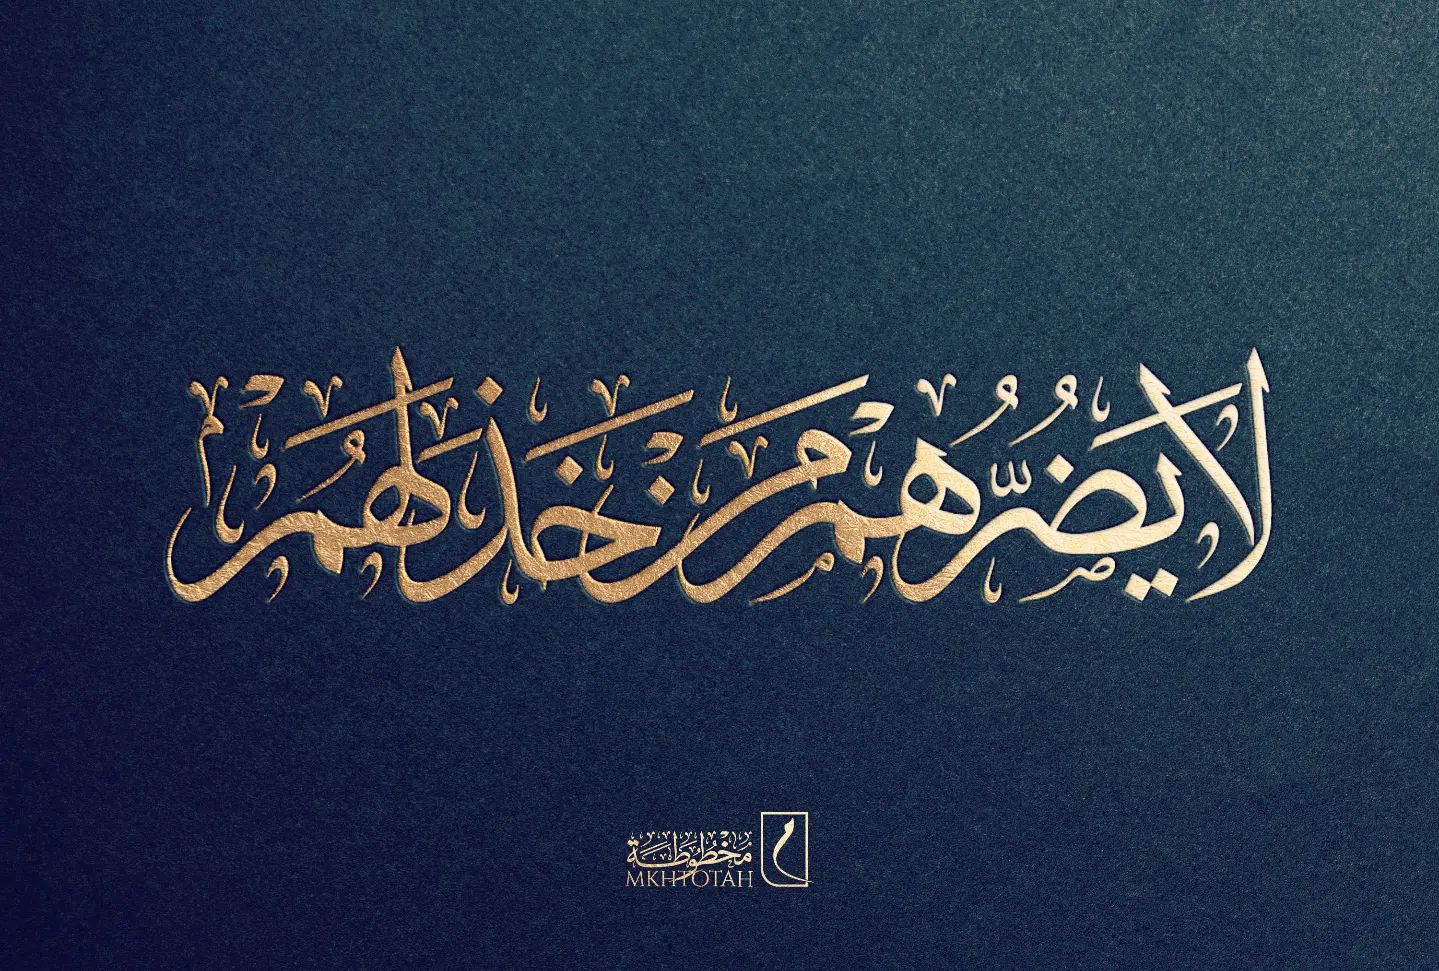 لا يضُرُّهم من خذلهُم
مخطُوطة
MKHTOTAH